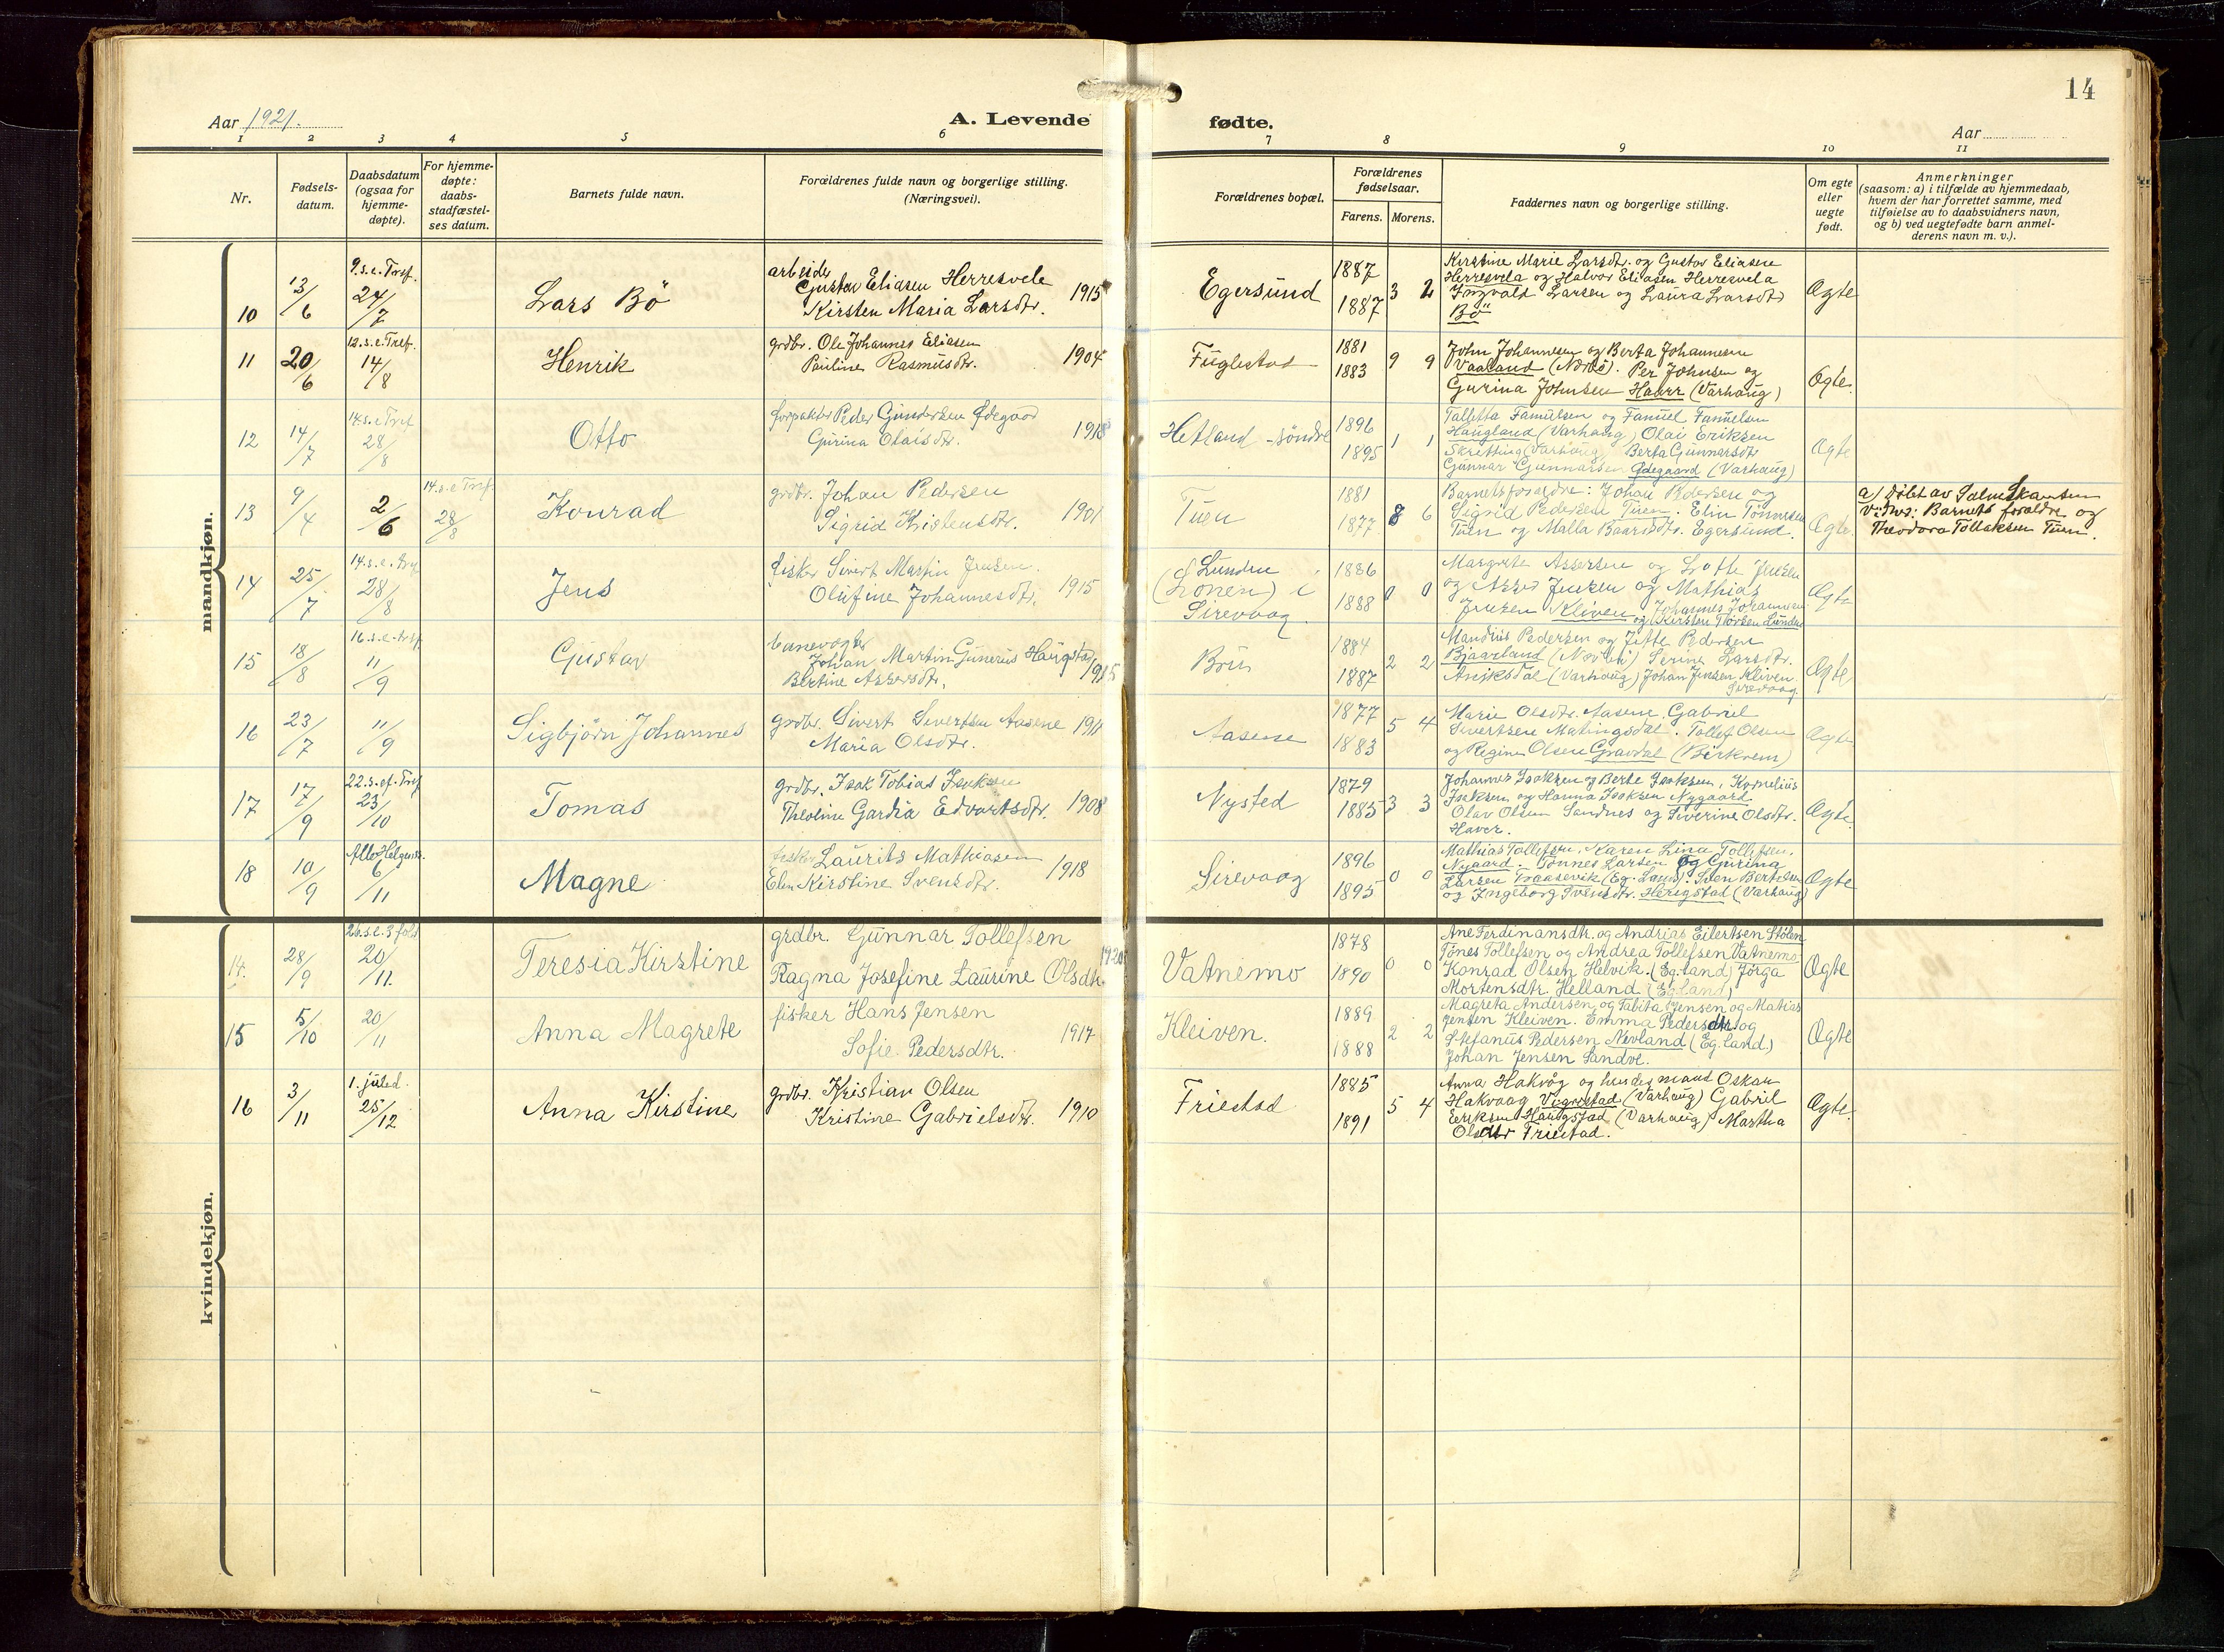 14
Aar 1921.
A. Levende fødte.
Aar
1 2 3 4 5 6 7 8 9 10 11
Nr.
Fødsels-
datum.
Daabsdatum
(ogsaa for
hjemme-
døpte).
For hjemme-
døpte:
daabs-
stadfæstel-
ses datum.
Barnets fulde navn.
Forældrenes fulde navn og borgerlige stilling.
(Næringsvei).
Forældrenes bopæl.
Forældrenes
fødselsaar.
Farens. Morens.
Faddernes navn og borgerlige stilling.
Om egte
eller
uegte
født.
Anmerkninger
(saasom: a) i tilfælde av hjemmedaab,
hvem der har forrettet samme, med
tilføielse av to daabsvidners navn,
og b) ved uegtefødte barn anmel-
derens navn m. v.).
mandkjøn.
10 13/6 9.s.e.Tref. 24/7 Lars Bö
arbeider
Gustav Eliasen Herresvele
Kirsten Maria Larsdtr. 1915
Egersund 1887 1887 3 2
Kirstine Marie Larsdtr. og Gustav Eliasen
Herresvela og Halvor Eliasen Herresvela
Ingvald Larsen og Laura Larsdtr
Bö
Ægte
11 20/6 12.s.e.Tref. 14/8 Henrik
grdbr. Ole Johannes Eliasen
Pauline Rasmusdtr. 1904
Fuglestad 1881 1883 9 9
John Johannesen og Berta Johannesen
Vaaland (Nærbö). Per Johnsen og
Gurina Johnsen Haarr (Varhaug)
Ægte.
12 14/7 14.s.e.Tref 28/8 Otto
forpakter Peder Gundersen Ødegaard
Gurina Olaisdtr. 1918
Hetland - söndre 1896 1895 1 1
Talletta Famuelsen og Fanuel Fanuelsen
Haugland (Varhaug) Olai Eriksen
Skretting (Varhaug) Berta Gunnarsdtr
Gunnar Gunnarsen Ødegaard (Varhaug)
Ægte
13 9/4 2/6 14.s.e.Tref. 28/8 Konrad
grdbr. Johan Pedersen
Sigrid Kristensdtr. 1901
Tuen 1881 1877 8 6
Barnets forældre: Johan Pedersen og
Sigrid Pedersen Tuen. Elin Tönnesen
Tuen og Malla Baardsdtr. Egersund.
Ægte.
a) Döbt av Salmskansen
Vidner: Barnets forældre og
Theodora Tollaksen Tuen.
14 25/7 14.s.e.tref 28/8 Jens
fisker Sivert Martin Jensen.
Olufine Johannesdtr. 1915
Lunden
(Lonen) i
Sirevaag. 1886 1888 0 0
Margrete Assersen og Lotte Jensen
og Asser Jensen og Mathias
Jensen Kleiven. Johannes Johannesen
og Kirsten Torsen Lunden
Ægte
15 18/8 16.s.e.tref 11/9 Gustav
banevogter
Johan Martin Gunerius Haugstad
Bertine Assersdtr. 1915
Bru 1884 1887 2 2
Mandius Pedersen og Jitte Pedersen
Bjaarland (Nærbö) Serine Larsdtr.
(Varhaug) Johan Jensen Kleiven.
Sirevaag.
Ægte
16 23/7 11/9 Sigbjörn Johannes
grdbr. Sivert Sivertsen Aasene
Maria Olsdtr. 1911
Aasene 1877 1883 5 4
Marie Olsdtr. Aasene. Gabriel
Sivertsen Matingsdal. Tollef Olsen
og Regine Olsen Gravdal (Birkrem)
Ægte
17 17/9 22.s.ef.Tref 23/10 Tomas
grdbr. Isak Tobias Isaksen
Theoline Gardia Edvartsdtr. 1908
Nysted 1879 1885 3 3
Johannes Isaksen og Berte Isaksen, Kornelius
Isaksen og Hanna Isaksen Nygaard.
Olav Olsen Sandnes og Siverine Olsdtr.
Haver.
Ægte.
18 10/9 Alle Helgens. 6/11 Magne
fisker Laurits Mathiasen
Elen Kirstine Svensdtr. 1918
Sirevaag 1896 1895 0 0
Mathias Tollefsen, Karen Lina Tollefsen.
Nygaard. Tönnes Larsen og Gurina
Larsen Traasevik (Eg. Land). Sven Bertelsen
og Ingeborg Svensdtr. Herigstad (Varhaug)
Ægte
kvindekjøn.
14. 28/9 26.s.e.3fold 20/11. Teresia Kirstine
grdbr. Gunnar Tollefsen
Ragna Josefine Laurine Olsdtr. 1920
Vatnemo 1878 1890 0 0
Ane Ferdinansdtr. og Andrias Eilertsen Stölen
Tönes Tollefsen og Andrea Tollefsen Vatnemo
Konrad Olsen Helvik. (Eg. land) Jörga
Mortensdtr. Helland (Eg. Land)
Ægte
15 5/10 20/11 Anna Magrete
fisker Hans Jensen
Sofie Pedersdtr. 1917
Kleiven. 1889 1888 2 2
Magreta Andersen og Tabita Jensen og Matias
Jensen Kleiven. Emma Pedersdtr og
Stefanus Pedersen Nevland (Eg. land.)
Johan Jensen Sandve.
Ægte
16 3/11 1. juled. 25/12 Anna Kirstine
grdbr. Kristian Olsen
Kristine Gabrielsdtr. 1910
Friestad 1885 1891 5 4
Anna Hakvåg og hendes mand Oskar
Hakvaag Vigrestad (Varhaug) Gabriel
Eriksen Haugstad (Varhaug) Martha
Olsdtr Friestad.
Ægte.